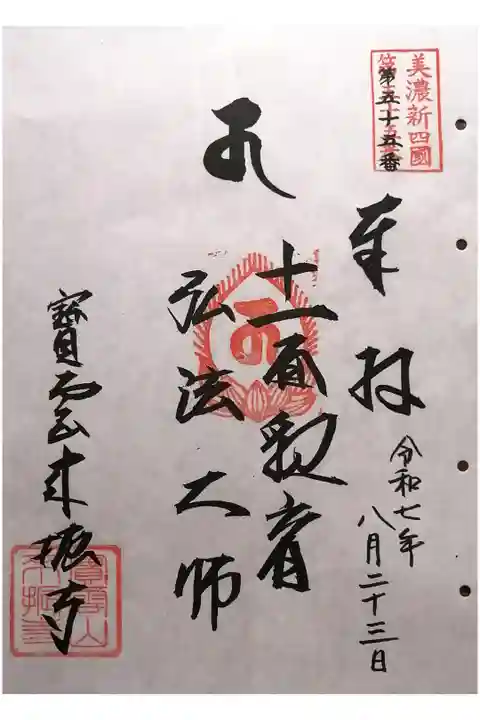 美濃新四國
第五十五番
奉拝
令和七年
八月二十三日
十一面観音
弘法大師
寳雲山
来振寺